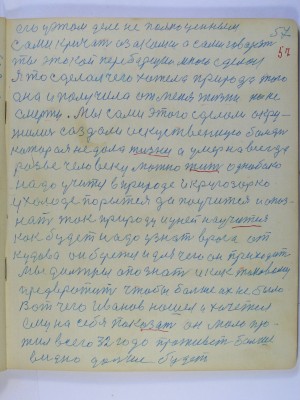 его этом деле не полноценным 57
сами кричат о законе а сами говорят 57
ты
Я то сделал чего хотела природа того
она и получила от меня жизни но не
смерти. Мы сами этого сделали окру-
жили создали искусственную болезнь
которая не дола жизни а умер на всегда
разве человеку можно жить одиноково
надо учится в природе и круго зорко
у холоде порется да поучится и опоз-
нать ток природу и у ней научатся
как будет и надо узнать врага от
кудова он будется и для чего он приходит
Мы должны опознать и как токовому
предворотить чтобы больше их не было
Вот чего Иванов нашел и хочется
ему на себя показать он мало про-
жил всего 32 года проживет больше
видно дольше будет